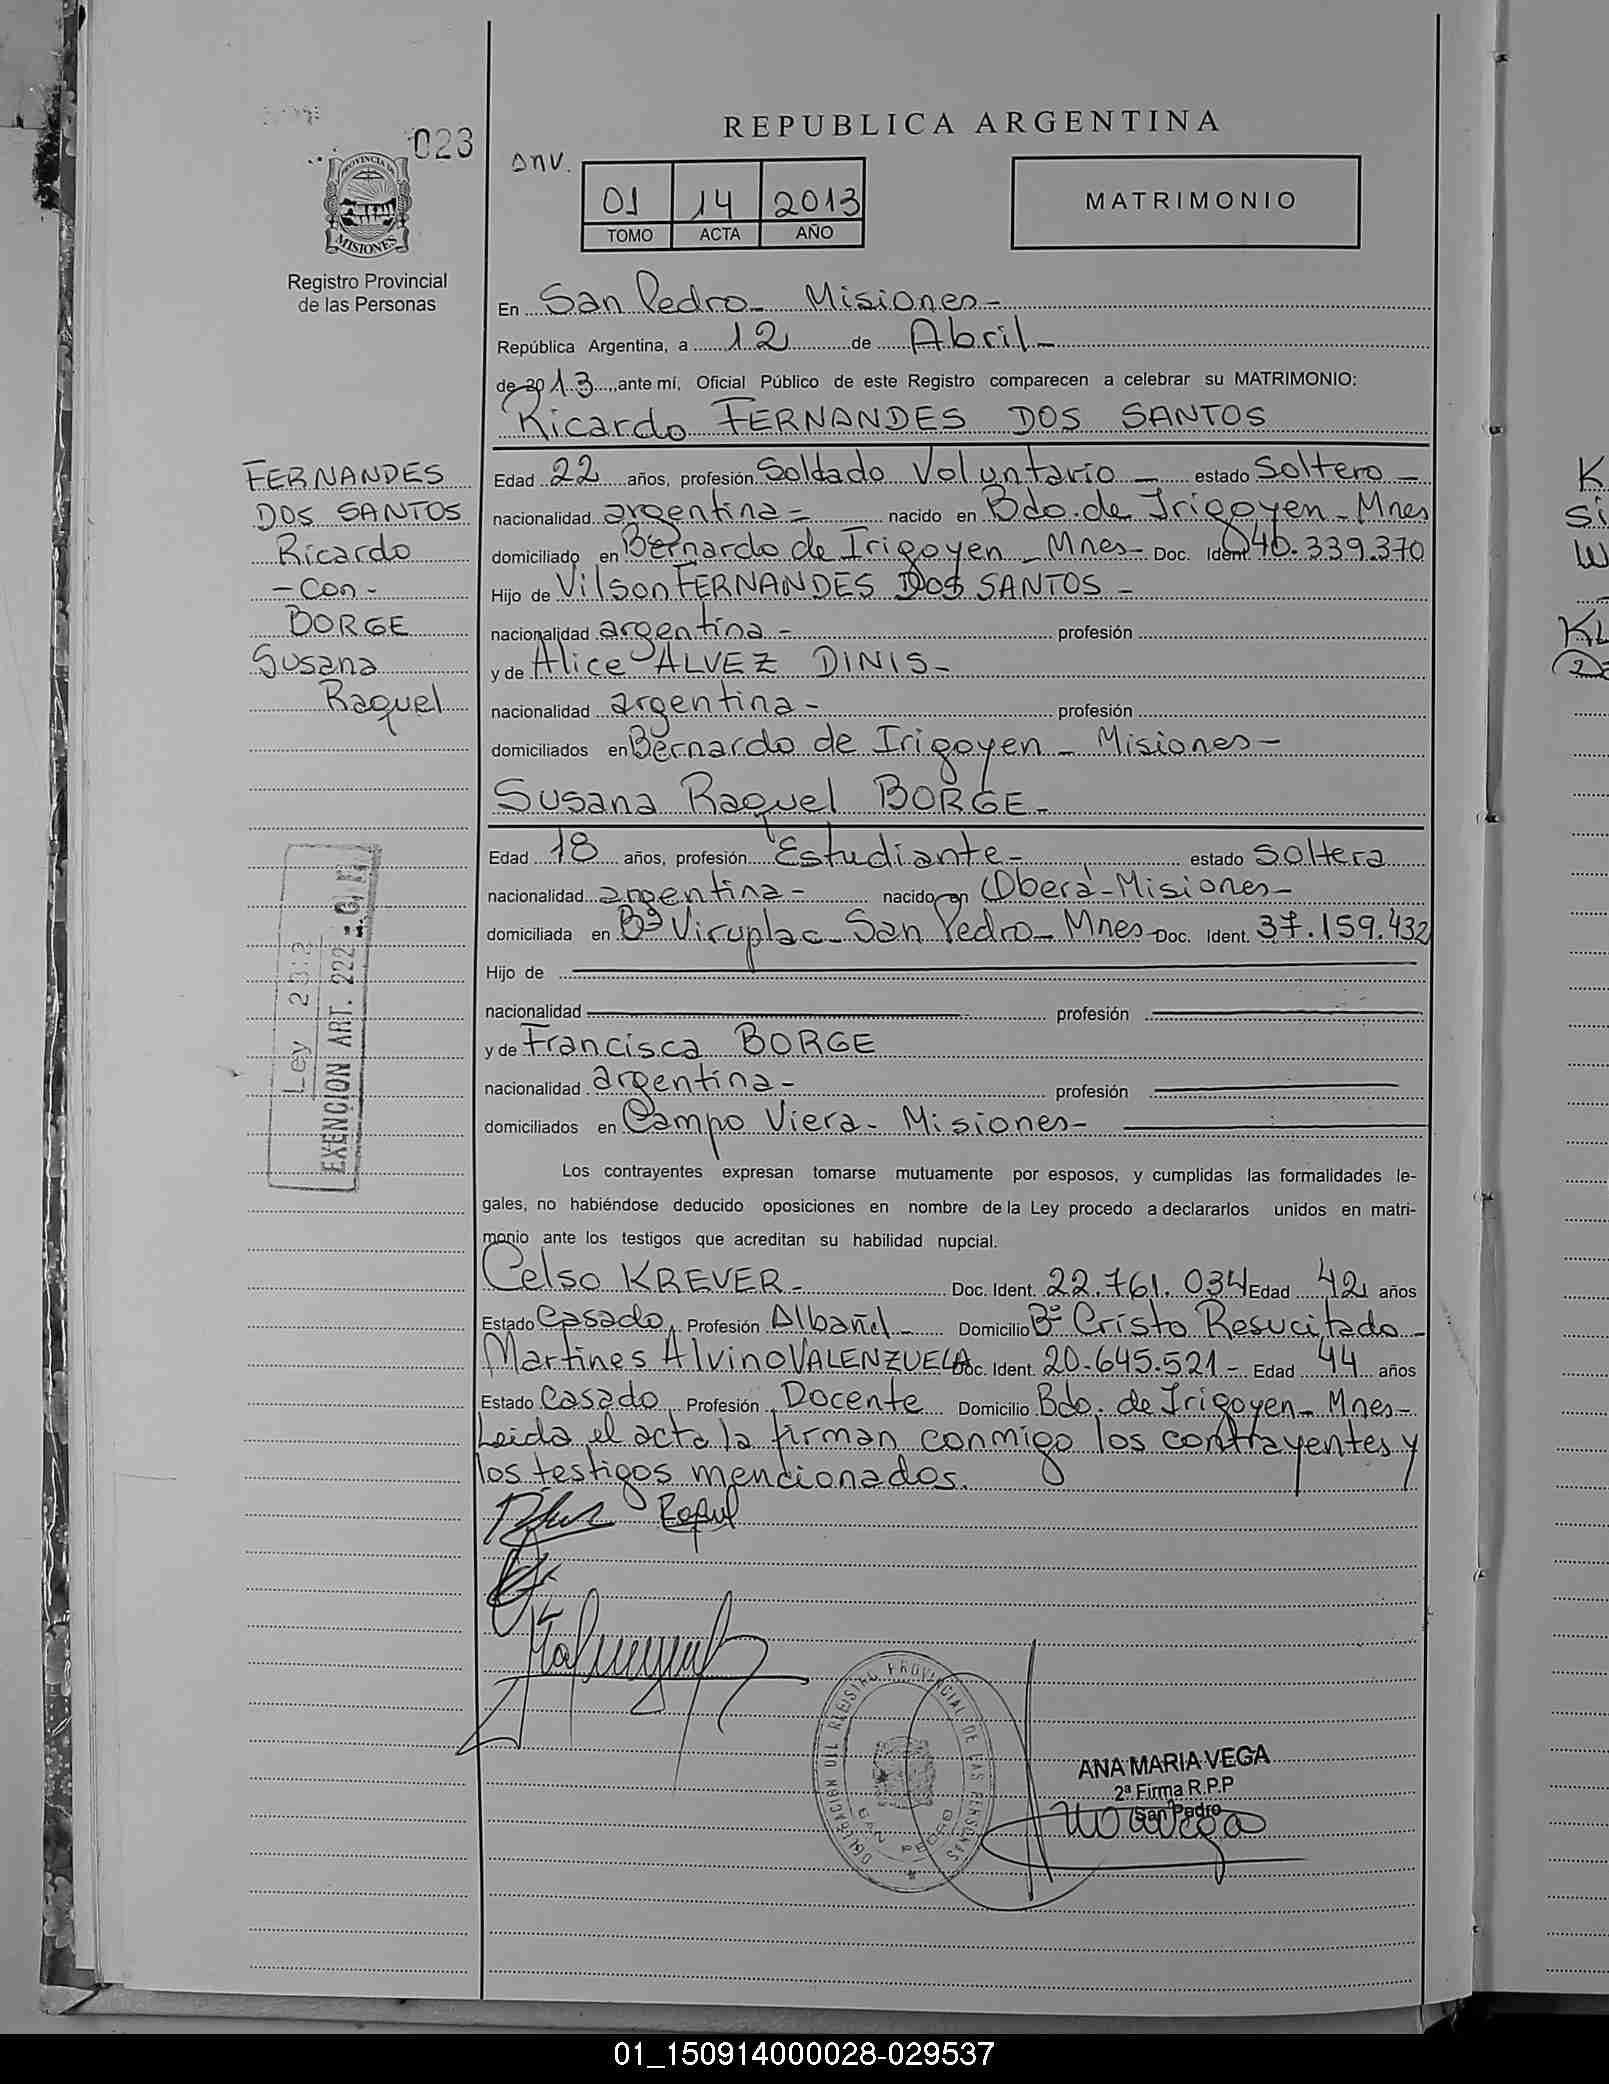 023
PROVINCIA DE
MISIONES
Registro Provincial
de las Personas
REPUBLICA ARGENTINA
anv.
01 14 2013
TOMO ACTA AÑO
MATRIMONIO
En San Pedro - Misiones -
República Argentina, a 12 de Abril -
de 2013, ante mí, Oficial Público de este Registro comparecen a celebrar su MATRIMONIO:
Ricardo FERNANDES DOS SANTOS
FERNANDES
DOS SANTOS
Ricardo
- Con -
BORGE
Susana
Raquel
Edad 22 años, profesión Soldado Voluntario - estado Soltero -
nacionalidad argentina - nacido en Bdo. de Irigoyen - Mnes
domiciliado en Bernardo de Irigoyen - Mnes - Doc. Ident. 40.339.370
Hijo de Vilson FERNANDES DOS SANTOS -
nacionalidad argentina - profesión
y de Alice ALVEZ DINIS -
nacionalidad argentina - profesión
domiciliados en Bernardo de Irigoyen - Misiones -
Susana Raquel BORGE -
Edad 18 años, profesión Estudiante - estado Soltera
nacionalidad argentina - nacido en Oberá - Misiones -
domiciliada en Bº Viruplac - San Pedro - Mnes - Doc. Ident. 37.159.432
Hijo de
nacionalidad profesión
y de Francisca BORGE
nacionalidad argentina - profesión
domiciliados en Campo Viera - Misiones -
Ley
EXENCION ART. 222
Los contrayentes expresan tomarse mutuamente por esposos, y cumplidas las formalidades le-
gales, no habiéndose deducido oposiciones en nombre de la Ley procedo a declararlos unidos en matri-
monio ante los testigos que acreditan su habilidad nupcial.
Celso KREVER - Doc. Ident. 22.761.034 Edad 42 años
Estado Casado Profesión Albañil - Domicilio Bº Cristo Resucitado -
Martines Alvino VALENZUELA Doc. Ident. 20.645.521 - Edad 44 años
Estado Casado Profesión Docente Domicilio Bdo. de Irigoyen - Mnes -
Leida el acta la firman conmigo los contrayentes y
los testigos mencionados.
DELEGACION DEL REGISTRO PROVINCIAL DE LAS PERSONAS
SAN PEDRO
ANA MARIA VEGA
2ª Firma R.P.P
San Pedro
K
Si
W
01_150914000028-029537